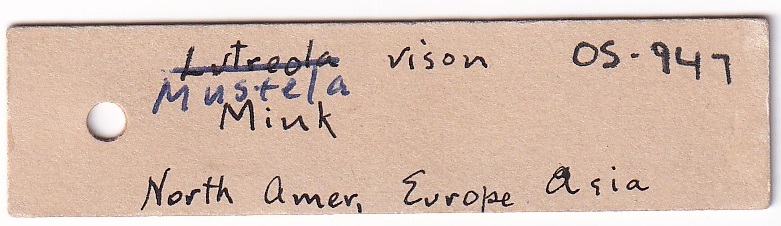 Lutreola vison OS-947
Mustela
Mink
North Amer, Europe Asia